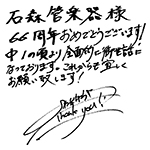 石森管楽器様
66周年おめでとうございます!
中1の頃より全面的にお世話に
なっております。これからも宜しく
お願い致します!
Thank you!!